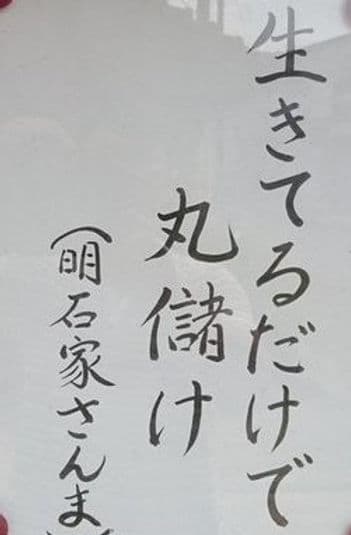 生きてるだけで
丸儲け
(明石家さんま)